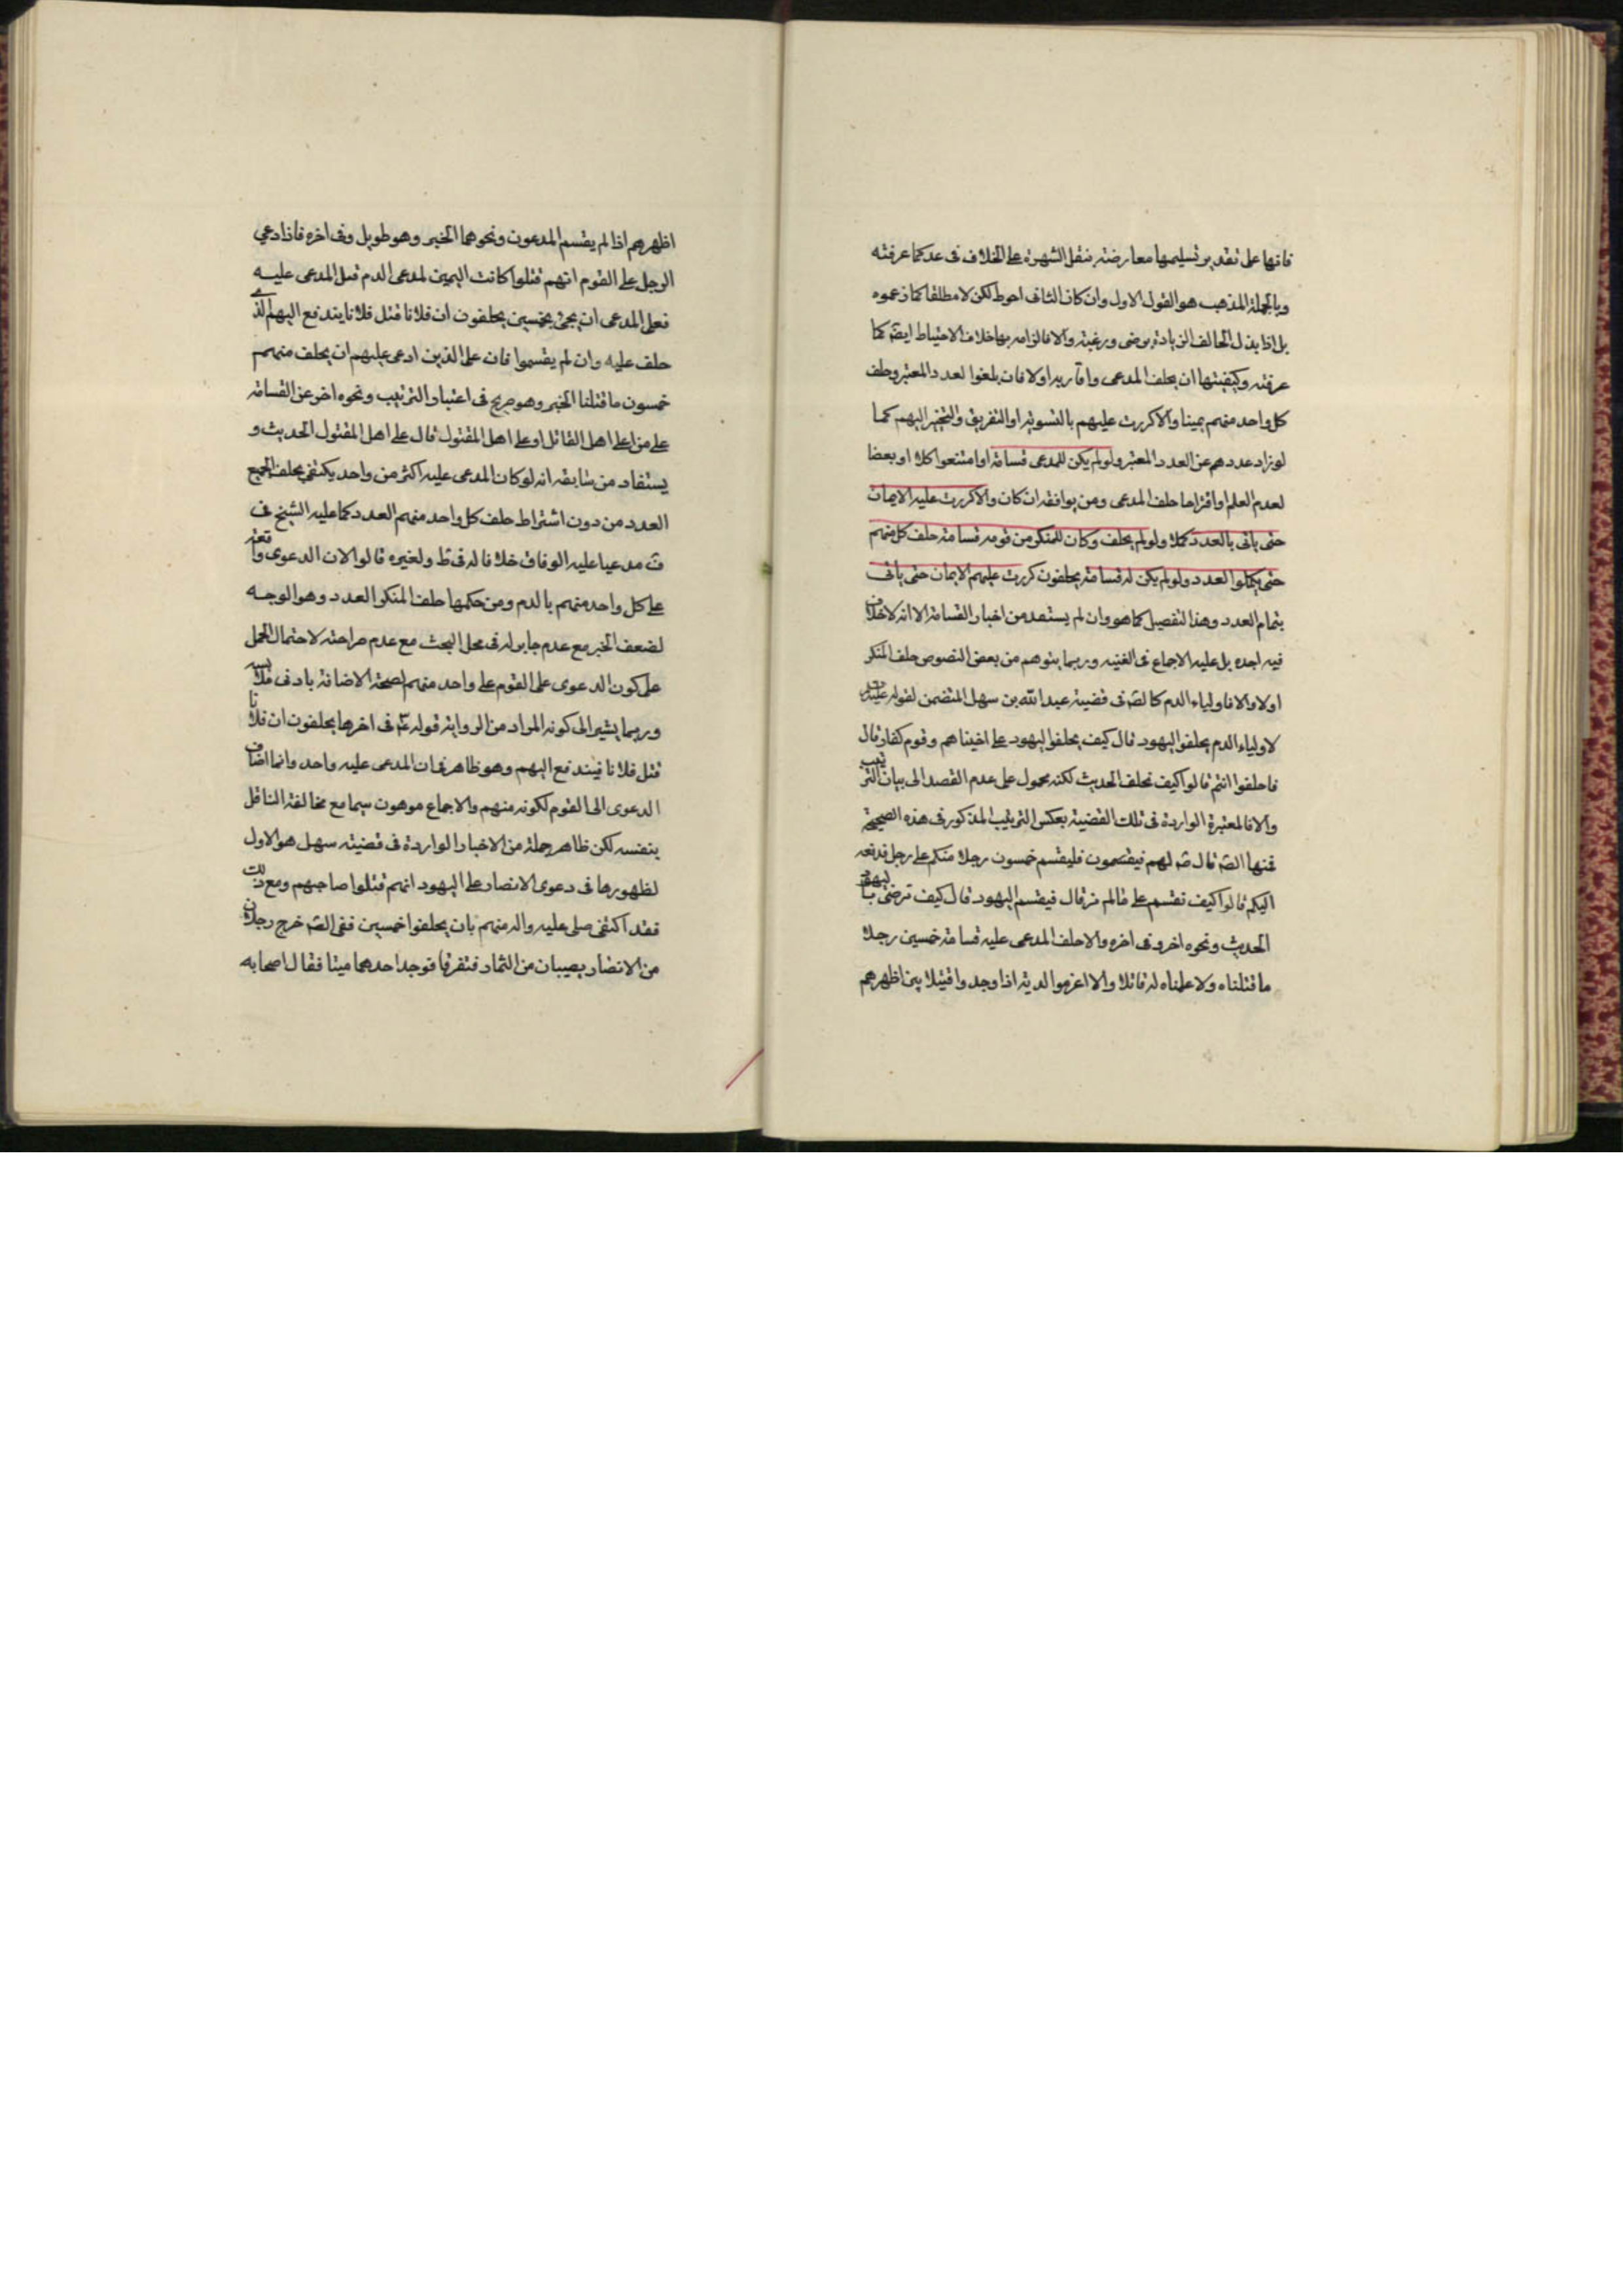 فانها على تقدير تسليمها معارضة بنقل الشهرة على الخلاف فى عد كما عرفته
وبالجملة المذهب هو القول الاول وان كان الثانى احوط لكن لا مطلقا كما زعموه
بل اذا بذل الحالف الزيادة برضى ورغبة والا فالزامه بها خلاف الاحتياط ايضا كما
عرفته وكيفيتها ان يحلف المدعى واقاربه اولا فان بلغوا لعدد المعتبر وحلف
كل واحد منهم يمينا والا كررت عليهم بالتسوية او التفريق والتخيير اليهم كما
لو زاد عددهم عن العدد المعتبر ولو لم يكن للمدعى قسامة او امتنعوا كلا او بعضا
لعدم العلم او اقتراحا حلف المدعى ومن يوافقه ان كان والا كررت عليه الايمان
حتى ياتى بالعدد كملا ولو لم يحلف وكان للمنكر من قومه قسامة حلف كل منهم
حتى يكملوا العدد ولو لم يكن له قسامة يحلفون كررت عليهم الايمان حتى ياتى
بتمام العدد وهذا التفصيل كما هو وان لم يستفد من اخبار القسامة الا انه لا خلاف
فيه اجده بل عليه الاجماع فى الغنيه وربما يتوهم من بعض النصوص حلف المنكر
اولا والا فاولياء الدم كالصّ فى قضية عبد الله بن سهل المتضمن لقوله
لاولياء الدم يحلفوا اليهود قال كيف يحلفوا اليهود على اخينا هم وقوم كفار قال
فاحلفوا انتم قالوا كيف نحلف الحديث لكنه محمول على عدم القصد الى بيان الترتيب
والا فالمعتبرة الواردة فى تلك القضية بعكس الترتيب المذكور فى هذه الصحيحة
فمنها الصّ قال صّ لهم فيقسمون فليقسم خمسون رجلا منكم على رجل ندفعه
اليكم قالوا كيف نقسم على ما لم نر قال فيقسم اليهود قال كيف نرضى باليهود
الحديث ونحوه اخر وفى اخره والا حلف المدعى عليه قسامة خمسين رجلا
ما قتلناه ولا علمناه له قاتلا والا اغرموا الدية اذا وجدوا قتيلا بين اظهرهم
اظهرهم اذا لم يقسم المدعون ونحوهما الخبر وهو طويل وفى اخره فاذا دعى
الرجل على القوم انهم قتلوا كانت اليمين لمدعى الدم قبل المدعى عليه
فعلى المدعى ان يجئ بخمسين يحلفون ان فلانا قتل فلانا يندفع اليهم الذى
حلف عليه وان لم يقسموا فان على الذين ادعى عليهم ان يحلف منهم
خمسون ما قتلنا الخبر وهو صريح فى اعتبار الترتيب ونحوه اخر عن القسامة
على من اعلى اهل القاتل او على اهل المقتول قال على اهل المقتول الحديث و
يستفاد من سابقه انه لو كان المدعى عليه اكثر من واحد يكتفى بحلف الجميع
العدد من دون اشتراط حلف كل واحد منهم العدد كما عليه الشيخ فى
ف مدعيا عليه الوفاق خلافا له فى ط ولغيره قالوا لان الدعوى واقعة
على كل واحد منهم بالدم ومن حكمها حلف المنكر العدد وهو الوجه
لضعف الخبر مع عدم جابر له فى محل البحث مع عدم صراحته لاحتمال الحمل
على كون الدعوى على القوم على واحد منهم لصحة الاضافة بادنى ملابسة
وربما يشير الى كونه المراد من الرواية قوله عّ فى اخرها يحلفون ان فلانا
قتل فلانا فيندفع اليهم وهو ظاهر فى ان المدعى عليه واحد وانما اضاف
الدعوى الى القوم لكونه منهم والاجماع موهون سيما مع مخالفة الناقل
بنفسه لكن ظاهر جملة من الاخبار الواردة فى قضية سهل هو الاول
لظهورها فى دعوى الانصار على اليهود انهم قتلوا صاحبهم ومع ذلك
فقد اكتفى صلى عليه واله منهم بان يحلفوا خمسين ففى الصّ خرج رجلان
من الانصار يصيبان من الثمار فتفرقا فوجد احدهما ميتا فقال اصحابه